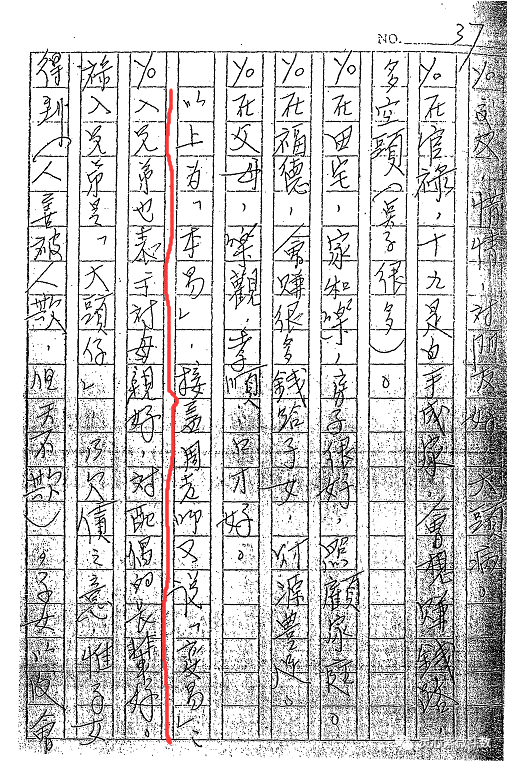 NO. 37
%交友，惜情，對朋友好，大頭病。
%在官祿，十九是白手成家，會想賺錢路，
多空頭（點子很多）。
%在田宅，家和樂，房子很好，照顧家庭。
%在福德，會賺很多錢給子女，財源豐足。
%在父母，樂觀，孝順，口才好。
以上為「本易」，接著周老師又說「變易」：
%入兄弟也表示對母親好，對配偶的長輩好。
祿入兄弟是「大頭仔」，乃欠債之意，惟子女
得到（人善被人欺，天不欺）。子女以後會